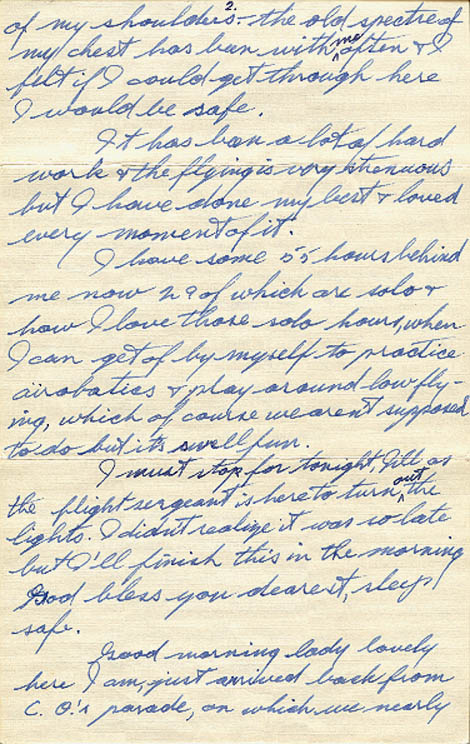 2.
of my shoulders - the old spectre of
my chest has been with me often & I
felt if I could get through here
I would be safe.
It has been a lot of hard
work & the flying is very strenuous
but I have done my best & loved
every moment of it.
I have some 55 hours behind
me now 29 of which are solo &
how I love those solo hours, when
I can get of by myself to practice
airobatics & play around low fly-
ing, which of course we aren't supposed
to do but its swell fun.
I must stop for tonight, Jill as
the flight sergeant is here to turn out the
lights. I didn't realize it was so late
but I'll finish this in the morning
God bless you dearest, sleep
safe.
Good morning lady lovely
here I am, just arrived back from
C. O.'s parade, on which we nearly